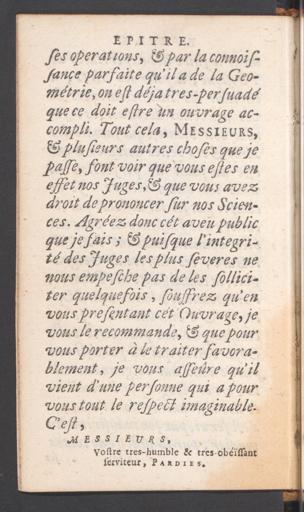 EPITRE.
ſes operations, & par la connoiſ-
ſance parfaite qu'il a de la Geo-
métrie, on eſt déja tres-perſuadé
que ce doit eſtre un ouvrage ac-
compli. Tout cela, MESSIEURS,
& pluſieurs autres choſes que je
paſſe, font voir que vous eſtes en
effet nos Juges, & que vous avez
droit de prononcer ſur nos Scien-
ces. Agréez donc cét aveu public
que je fais ; & puiſque l'integri-
té des Juges les plus ſeveres ne
nous empeſche pas de les ſollici-
ter quelquefois, ſouffrez qu'en
vous preſentant cét Ouvrage, je
vous le recommande, & que pour
vous porter à le traiter favora-
blement, je vous aſſeûre qu'il
vient d'une perſonne qui a pour
vous tout le reſpect imaginable.
C'eſt,
MESSIEURS,
Voſtre tres-humble & tres-obéïſſant
ſerviteur, PARDIES.